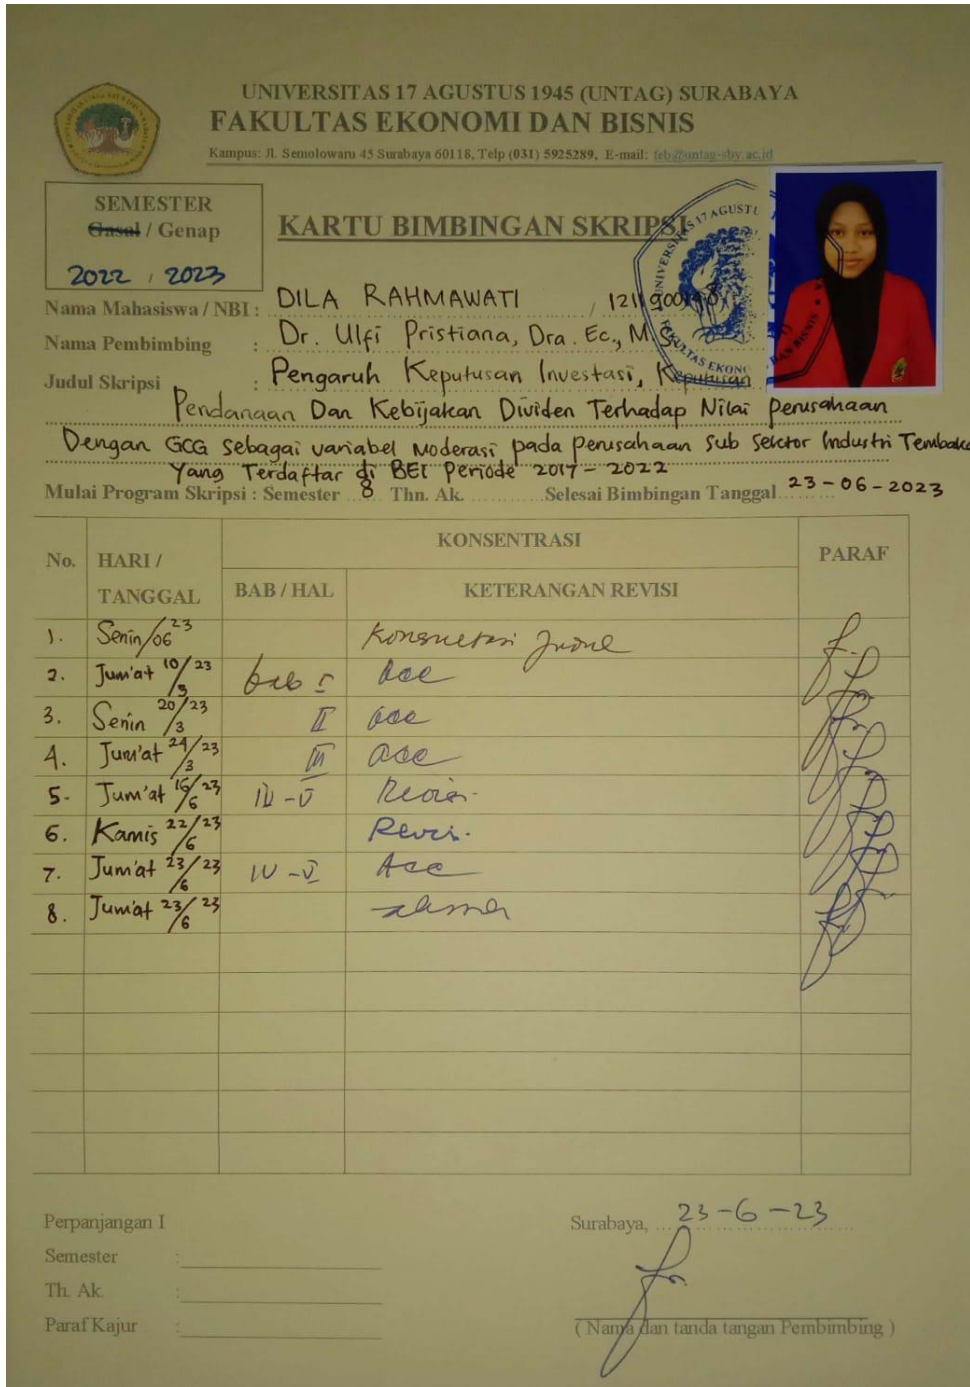 UNIVERSITAS 17 AGUSTUS 1945 (UNTAG) SURABAYA
FAKULTAS EKONOMI DAN BISNIS
Kampus: Jl. Semolowaru 45 Surabaya 60118, Telp (031) 5925289, E-mail: feb@untag-sby.ac.id
SEMESTER
Gasal / Genap
2022 / 2023
KARTU BIMBINGAN SKRIPSI
Nama Mahasiswa / NBI : DILA RAHMAWATI /
Nama Pembimbing : Dr. Ulfi Pristiana, Dra. Ec., M.S.
Judul Skripsi : Pengaruh Keputusan Investasi, Keputusan
Pendanaan Dan Kebijakan Dividen Terhadap Nilai Perusahaan
Dengan GCG Sebagai variabel Moderasi pada perusahaan Sub Sektor Industri
Yang Terdaftar di BEI Periode 2017 - 2022
Mulai Program Skripsi : Semester 8 Thn. Ak. Selesai Bimbingan Tanggal 23 - 06 - 2023
No. HARI / TANGGAL KONSENTRASI PARAF
BAB / HAL KETERANGAN REVISI
1. Senin /06 23
2. Jum'at 10/3 23 bab I acc
3. Senin 20/3 23 II acc
4. Jum'at 24/3 23 III acc
5. Jum'at 16/6 23 IV - V Revisi
6. Kamis 22/6 23 Revisi
7. Jum'at 23/6 23 IV - V Acc
8. Jum'at 23/6 23
Perpanjangan I
Semester :
Th. Ak. :
Paraf Kajur :
Surabaya, 23 - 6 - 23
( Nama dan tanda tangan Pembimbing )